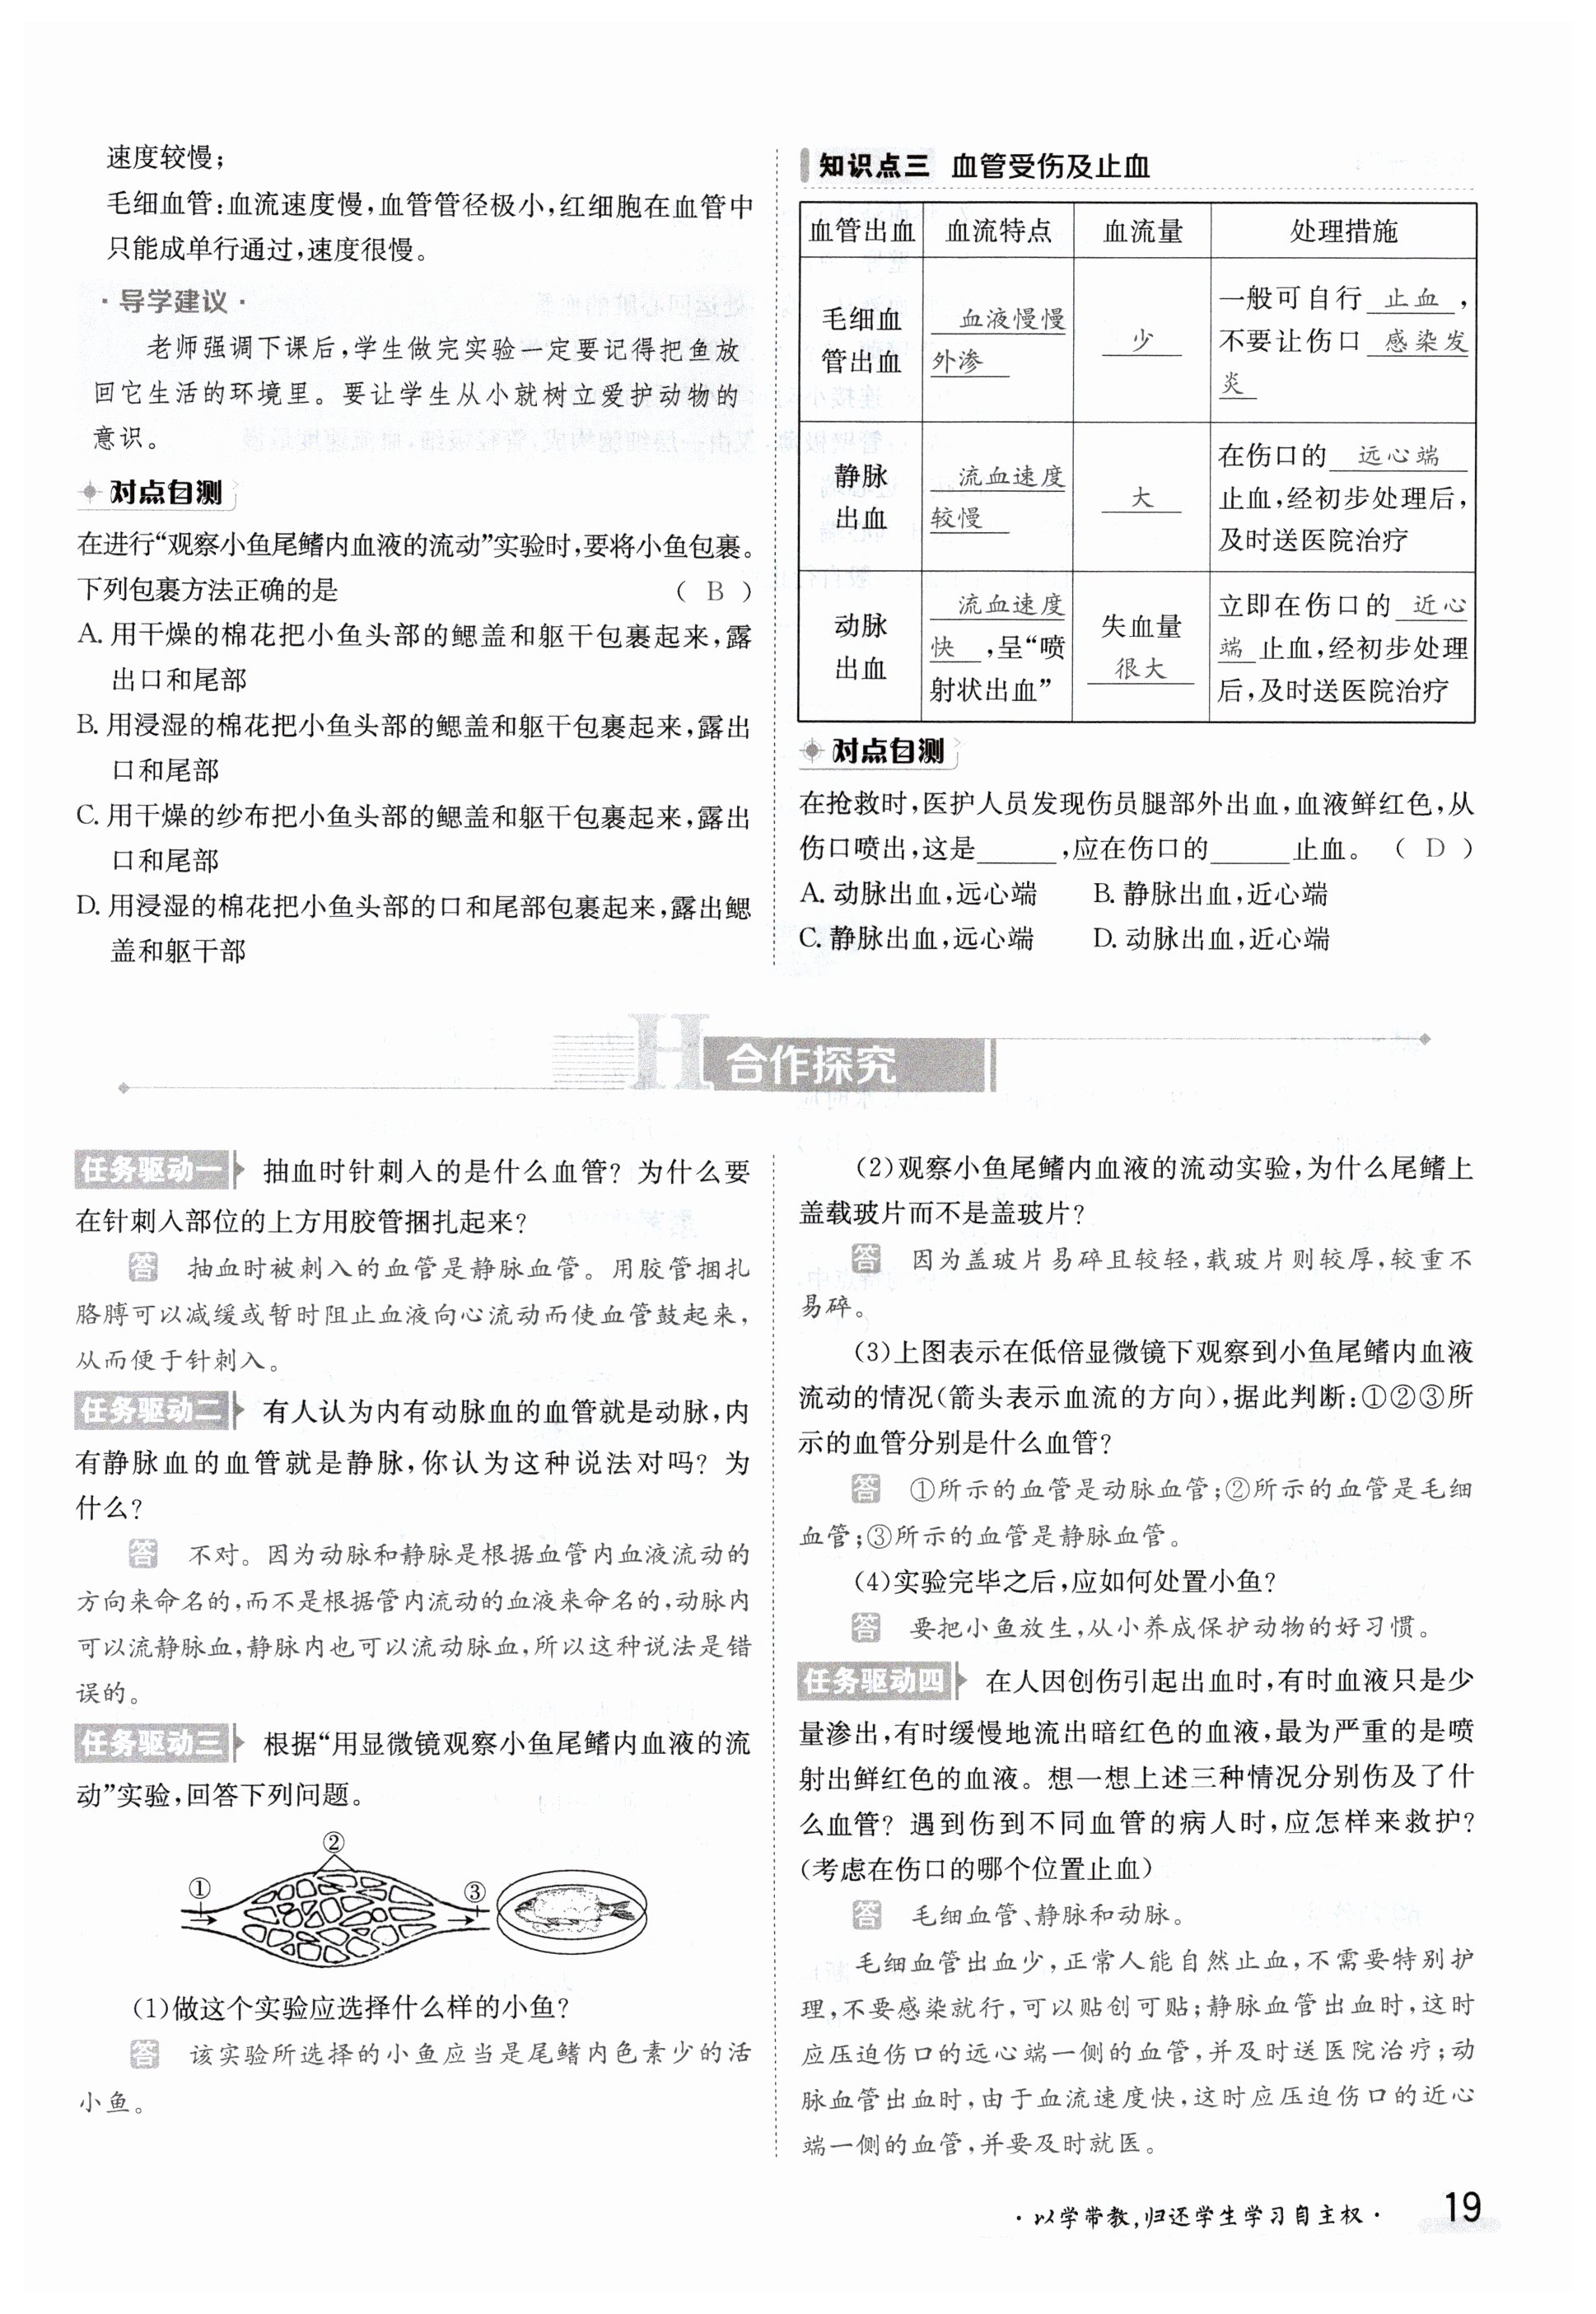 速度较慢;
毛细血管:血流速度慢,血管管径极小,红细胞在血管中
只能成单行通过,速度很慢。
·导学建议·
老师强调下课后,学生做完实验一定要记得把鱼放
回它生活的环境里。要让学生从小就树立爱护动物的
意识。
对点自测
在进行“观察小鱼尾鳍内血液的流动”实验时,要将小鱼包裹。
下列包裹方法正确的是 ( B )
A. 用干燥的棉花把小鱼头部的鳃盖和躯干包裹起来,露
出口和尾部
B. 用浸湿的棉花把小鱼头部的鳃盖和躯干包裹起来,露出
口和尾部
C. 用干燥的纱布把小鱼头部的鳃盖和躯干包裹起来,露出
口和尾部
D. 用浸湿的棉花把小鱼头部的口和尾部包裹起来,露出鳃
盖和躯干部
知识点三 血管受伤及止血
血管出血 血流特点 血流量 处理措施
毛细血管出血 血液慢慢外渗 少 一般可自行 止血 ,不要让伤口 感染发炎
静脉出血 流血速度较慢 大 在伤口的 远心端 止血,经初步处理后,及时送医院治疗
动脉出血 流血速度快 ,呈“喷射状出血” 失血量很大 立即在伤口的 近心端 止血,经初步处理后,及时送医院治疗
对点自测
在抢救时,医护人员发现伤员腿部外出血,血液鲜红色,从
伤口喷出,这是______,应在伤口的______止血。 ( D )
A. 动脉出血,远心端 B. 静脉出血,近心端
C. 静脉出血,远心端 D. 动脉出血,近心端
H 合作探究
任务驱动一 抽血时针刺入的是什么血管? 为什么要
在针刺入部位的上方用胶管捆扎起来?
答 抽血时被刺入的血管是静脉血管。用胶管捆扎
胳膊可以减缓或暂时阻止血液向心流动而使血管鼓起来,
从而便于针刺入。
任务驱动二 有人认为内有动脉血的血管就是动脉,内
有静脉血的血管就是静脉,你认为这种说法对吗? 为
什么?
答 不对。因为动脉和静脉是根据血管内血液流动的
方向来命名的,而不是根据管内流动的血液来命名的,动脉内
可以流静脉血,静脉内也可以流动脉血,所以这种说法是错
误的。
任务驱动三 根据“用显微镜观察小鱼尾鳍内血液的流
动”实验,回答下列问题。
②
①
③
(1)做这个实验应选择什么样的小鱼?
答 该实验所选择的小鱼应当是尾鳍内色素少的活
小鱼。
(2)观察小鱼尾鳍内血液的流动实验,为什么尾鳍上
盖载玻片而不是盖玻片?
答 因为盖玻片易碎且较轻,载玻片则较厚,较重不
易碎。
(3)上图表示在低倍显微镜下观察到小鱼尾鳍内血液
流动的情况(箭头表示血流的方向),据此判断:①②③所
示的血管分别是什么血管?
答 ①所示的血管是动脉血管;②所示的血管是毛细
血管;③所示的血管是静脉血管。
(4)实验完毕之后,应如何处置小鱼?
答 要把小鱼放生,从小养成保护动物的好习惯。
任务驱动四 在人因创伤引起出血时,有时血液只是少
量渗出,有时缓慢地流出暗红色的血液,最为严重的是喷
射出鲜红色的血液。想一想上述三种情况分别伤及了什
么血管? 遇到伤到不同血管的病人时,应怎样来救护?
(考虑在伤口的哪个位置止血)
答 毛细血管、静脉和动脉。
毛细血管出血少,正常人能自然止血,不需要特别护
理,不要感染就行,可以贴创可贴;静脉血管出血时,这时
应压迫伤口的远心端一侧的血管,并及时送医院治疗;动
脉血管出血时,由于血流速度快,这时应压迫伤口的近心
端一侧的血管,并要及时就医。
·以学带教,归还学生学习自主权· 19